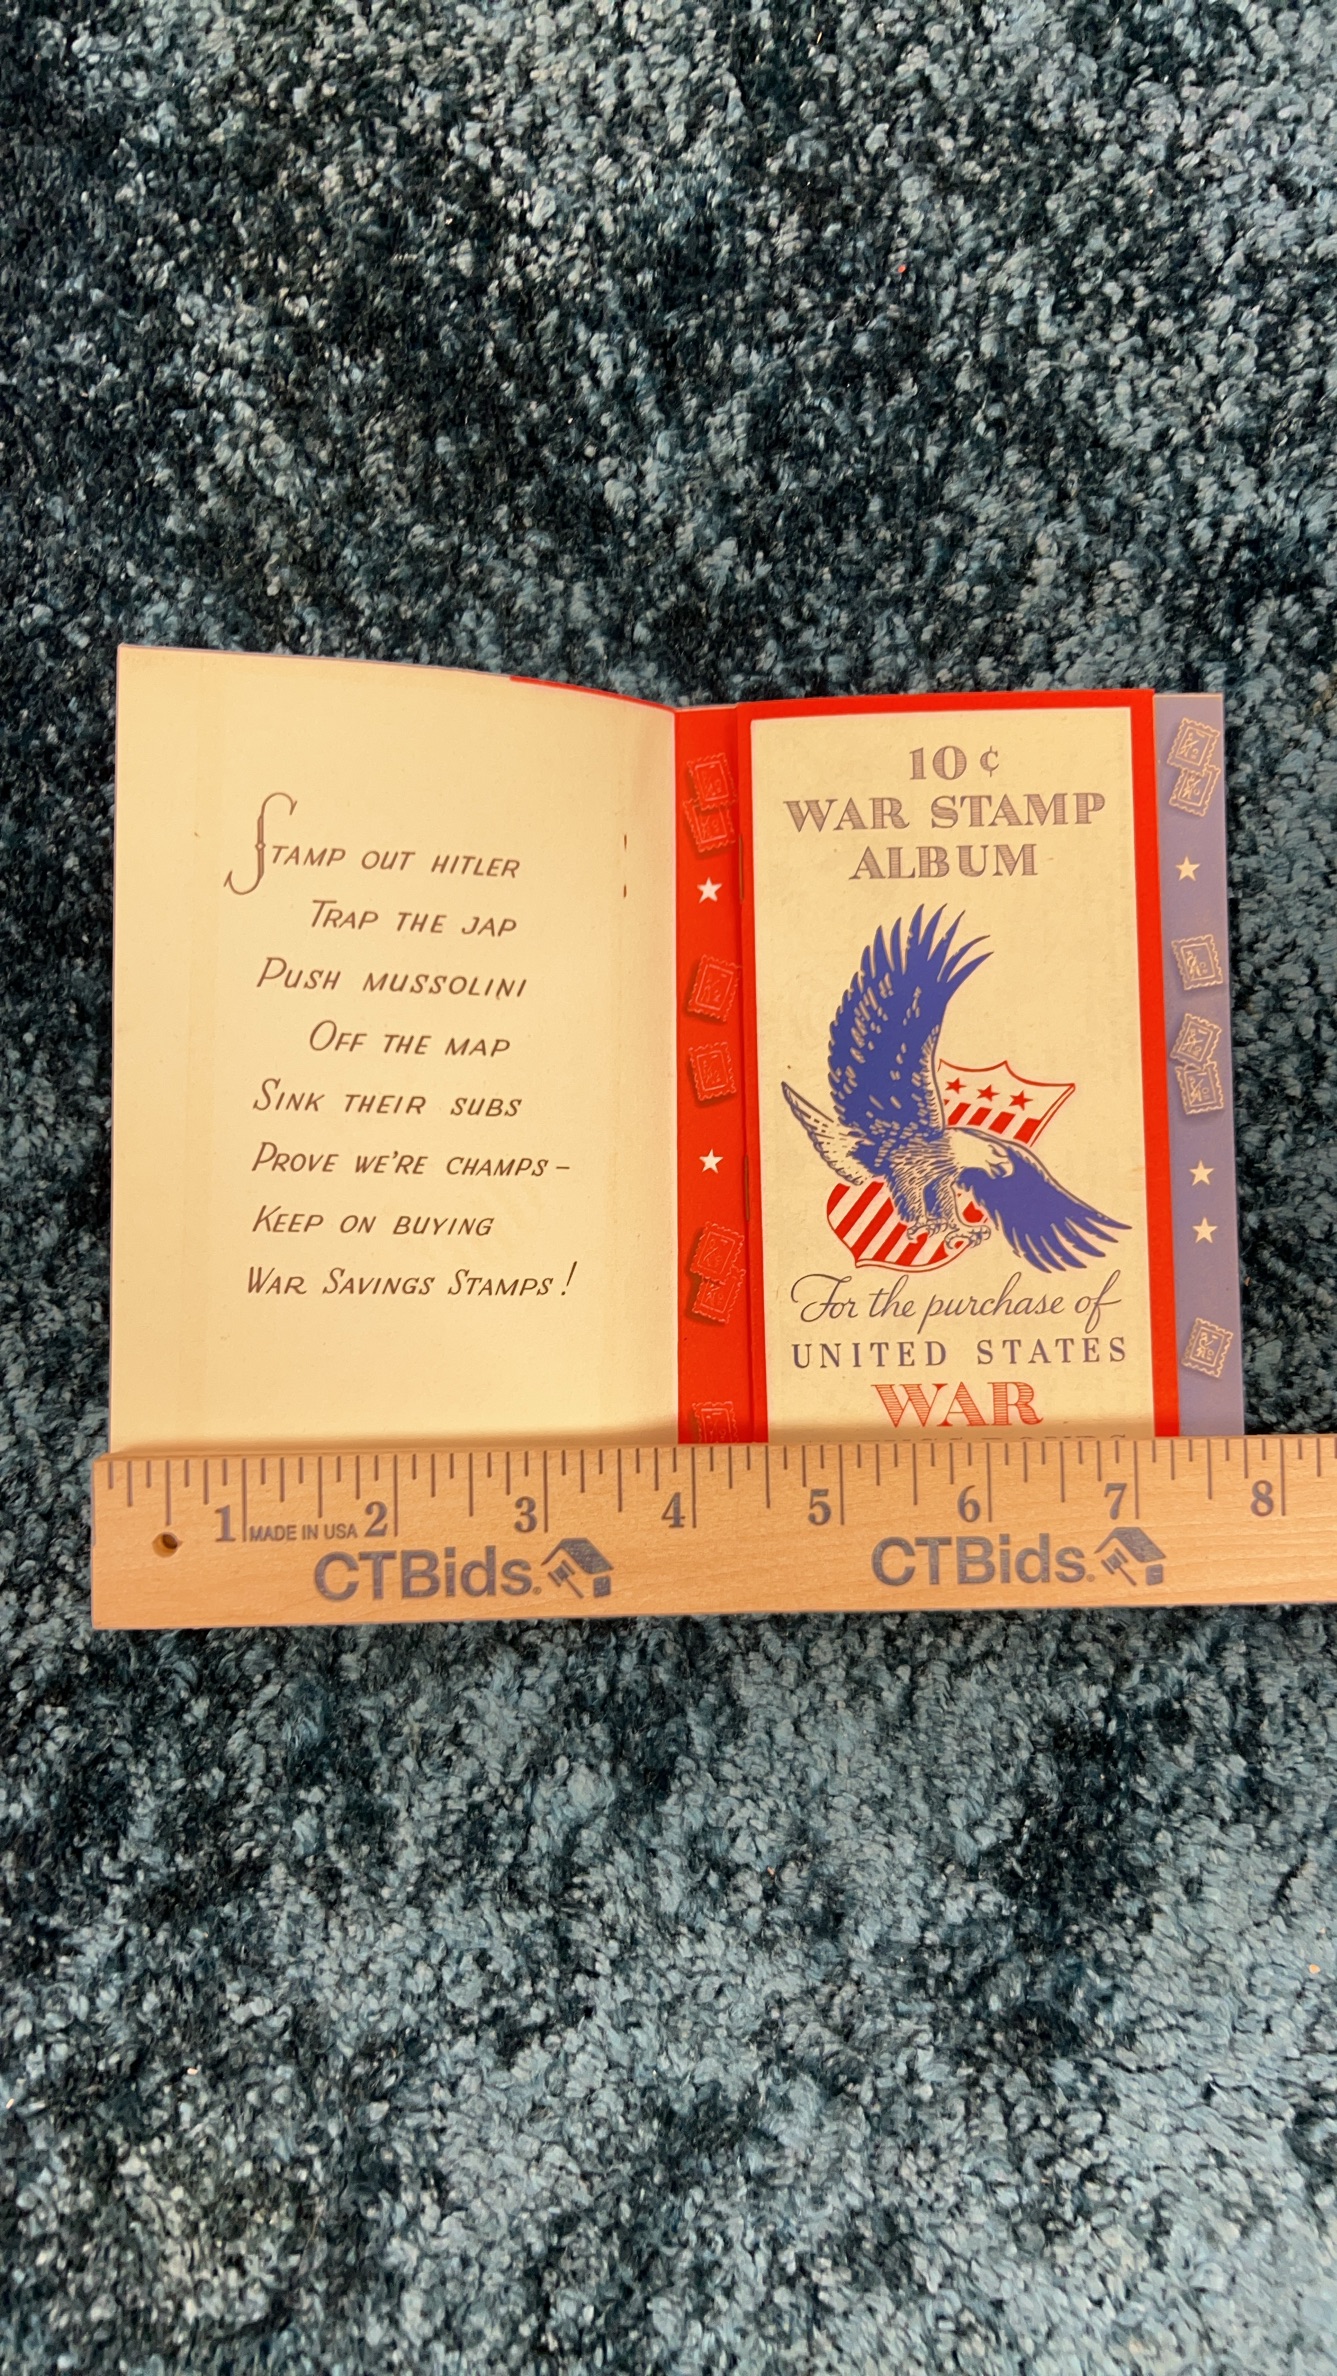 STAMP OUT HITLER
TRAP THE JAP
PUSH MUSSOLINI
OFF THE MAP
SINK THEIR SUBS
PROVE WE'RE CHAMPS –
KEEP ON BUYING
WAR SAVINGS STAMPS!
10¢
WAR STAMP
ALBUM
For the purchase of
UNITED STATES
WAR
1 2 3 4 5 6 7 8
MADE IN USA
CTBids. CTBids.